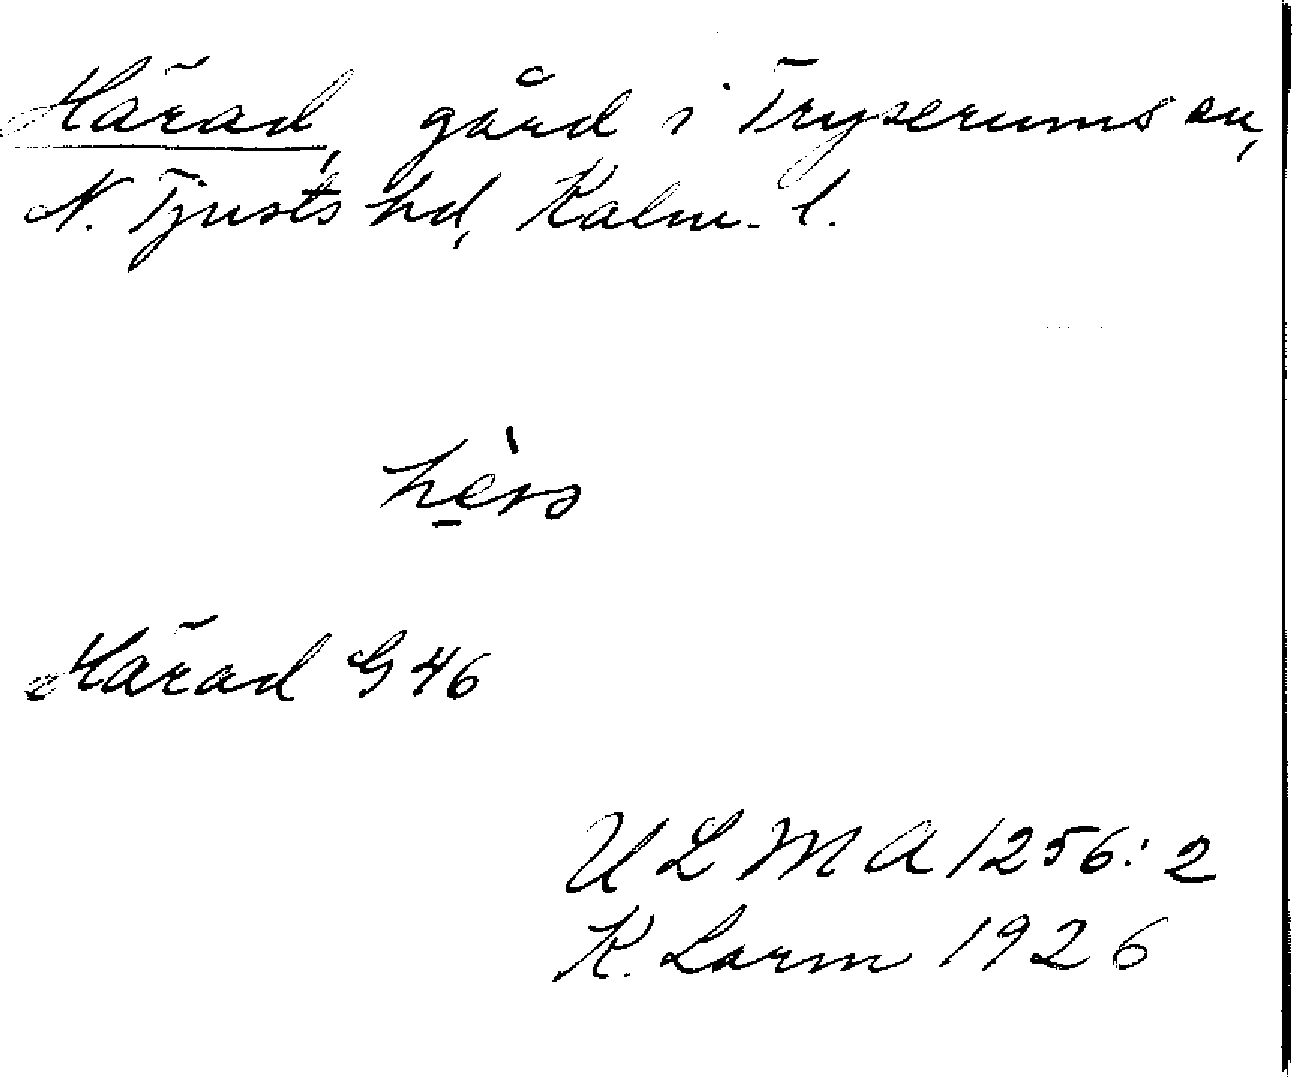 Härad, gård i Tryserums sn,
N. Tjusts hd, Kalm. l.
Härad G 46
U L M A 1256:2
K. Larm 1926